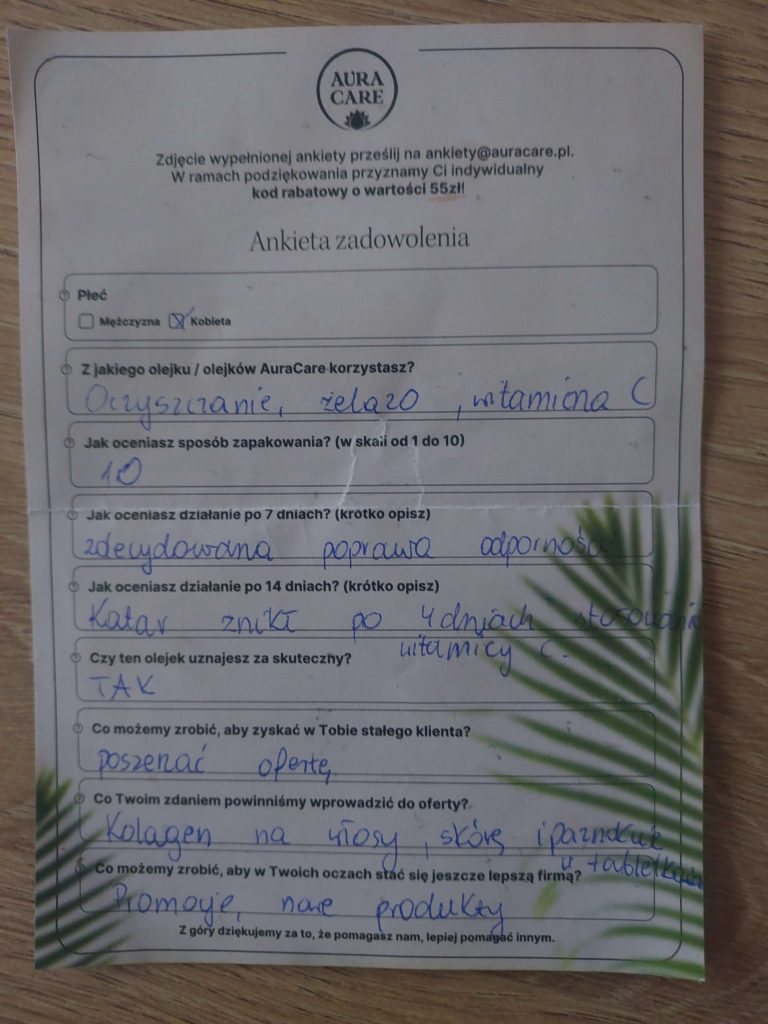 AURA
CARE
Zdjęcie wypełnionej ankiety prześlij na ankiety@auracare.pl.
W ramach podziękowania przyznamy Ci indywidualny
kod rabatowy o wartości 55zł!
Ankieta zadowolenia
Płeć
Mężczyzna Kobieta
Z jakiego olejku / olejków AuraCare korzystasz?
Oczyszczanie, żelazo, witamina C
Jak oceniasz sposób zapakowania? (w skali od 1 do 10)
10
Jak oceniasz działanie po 7 dniach? (krótko opisz)
zdecydowana poprawa odporności
Jak oceniasz działanie po 14 dniach? (krótko opisz)
Katar znikł po 4 dniach stosowania
witamicy C.
Czy ten olejek uznajesz za skuteczny?
TAK
Co możemy zrobić, aby zyskać w Tobie stałego klienta?
poszerzać ofertę
Co Twoim zdaniem powinniśmy wprowadzić do oferty?
Kolagen na włosy, skórę i paznokcie
w tabletkach
Co możemy zrobić, aby w Twoich oczach stać się jeszcze lepszą firmą?
Promocje, nowe produkty
Z góry dziękujemy za to, że pomagasz nam, lepiej pomagać innym.